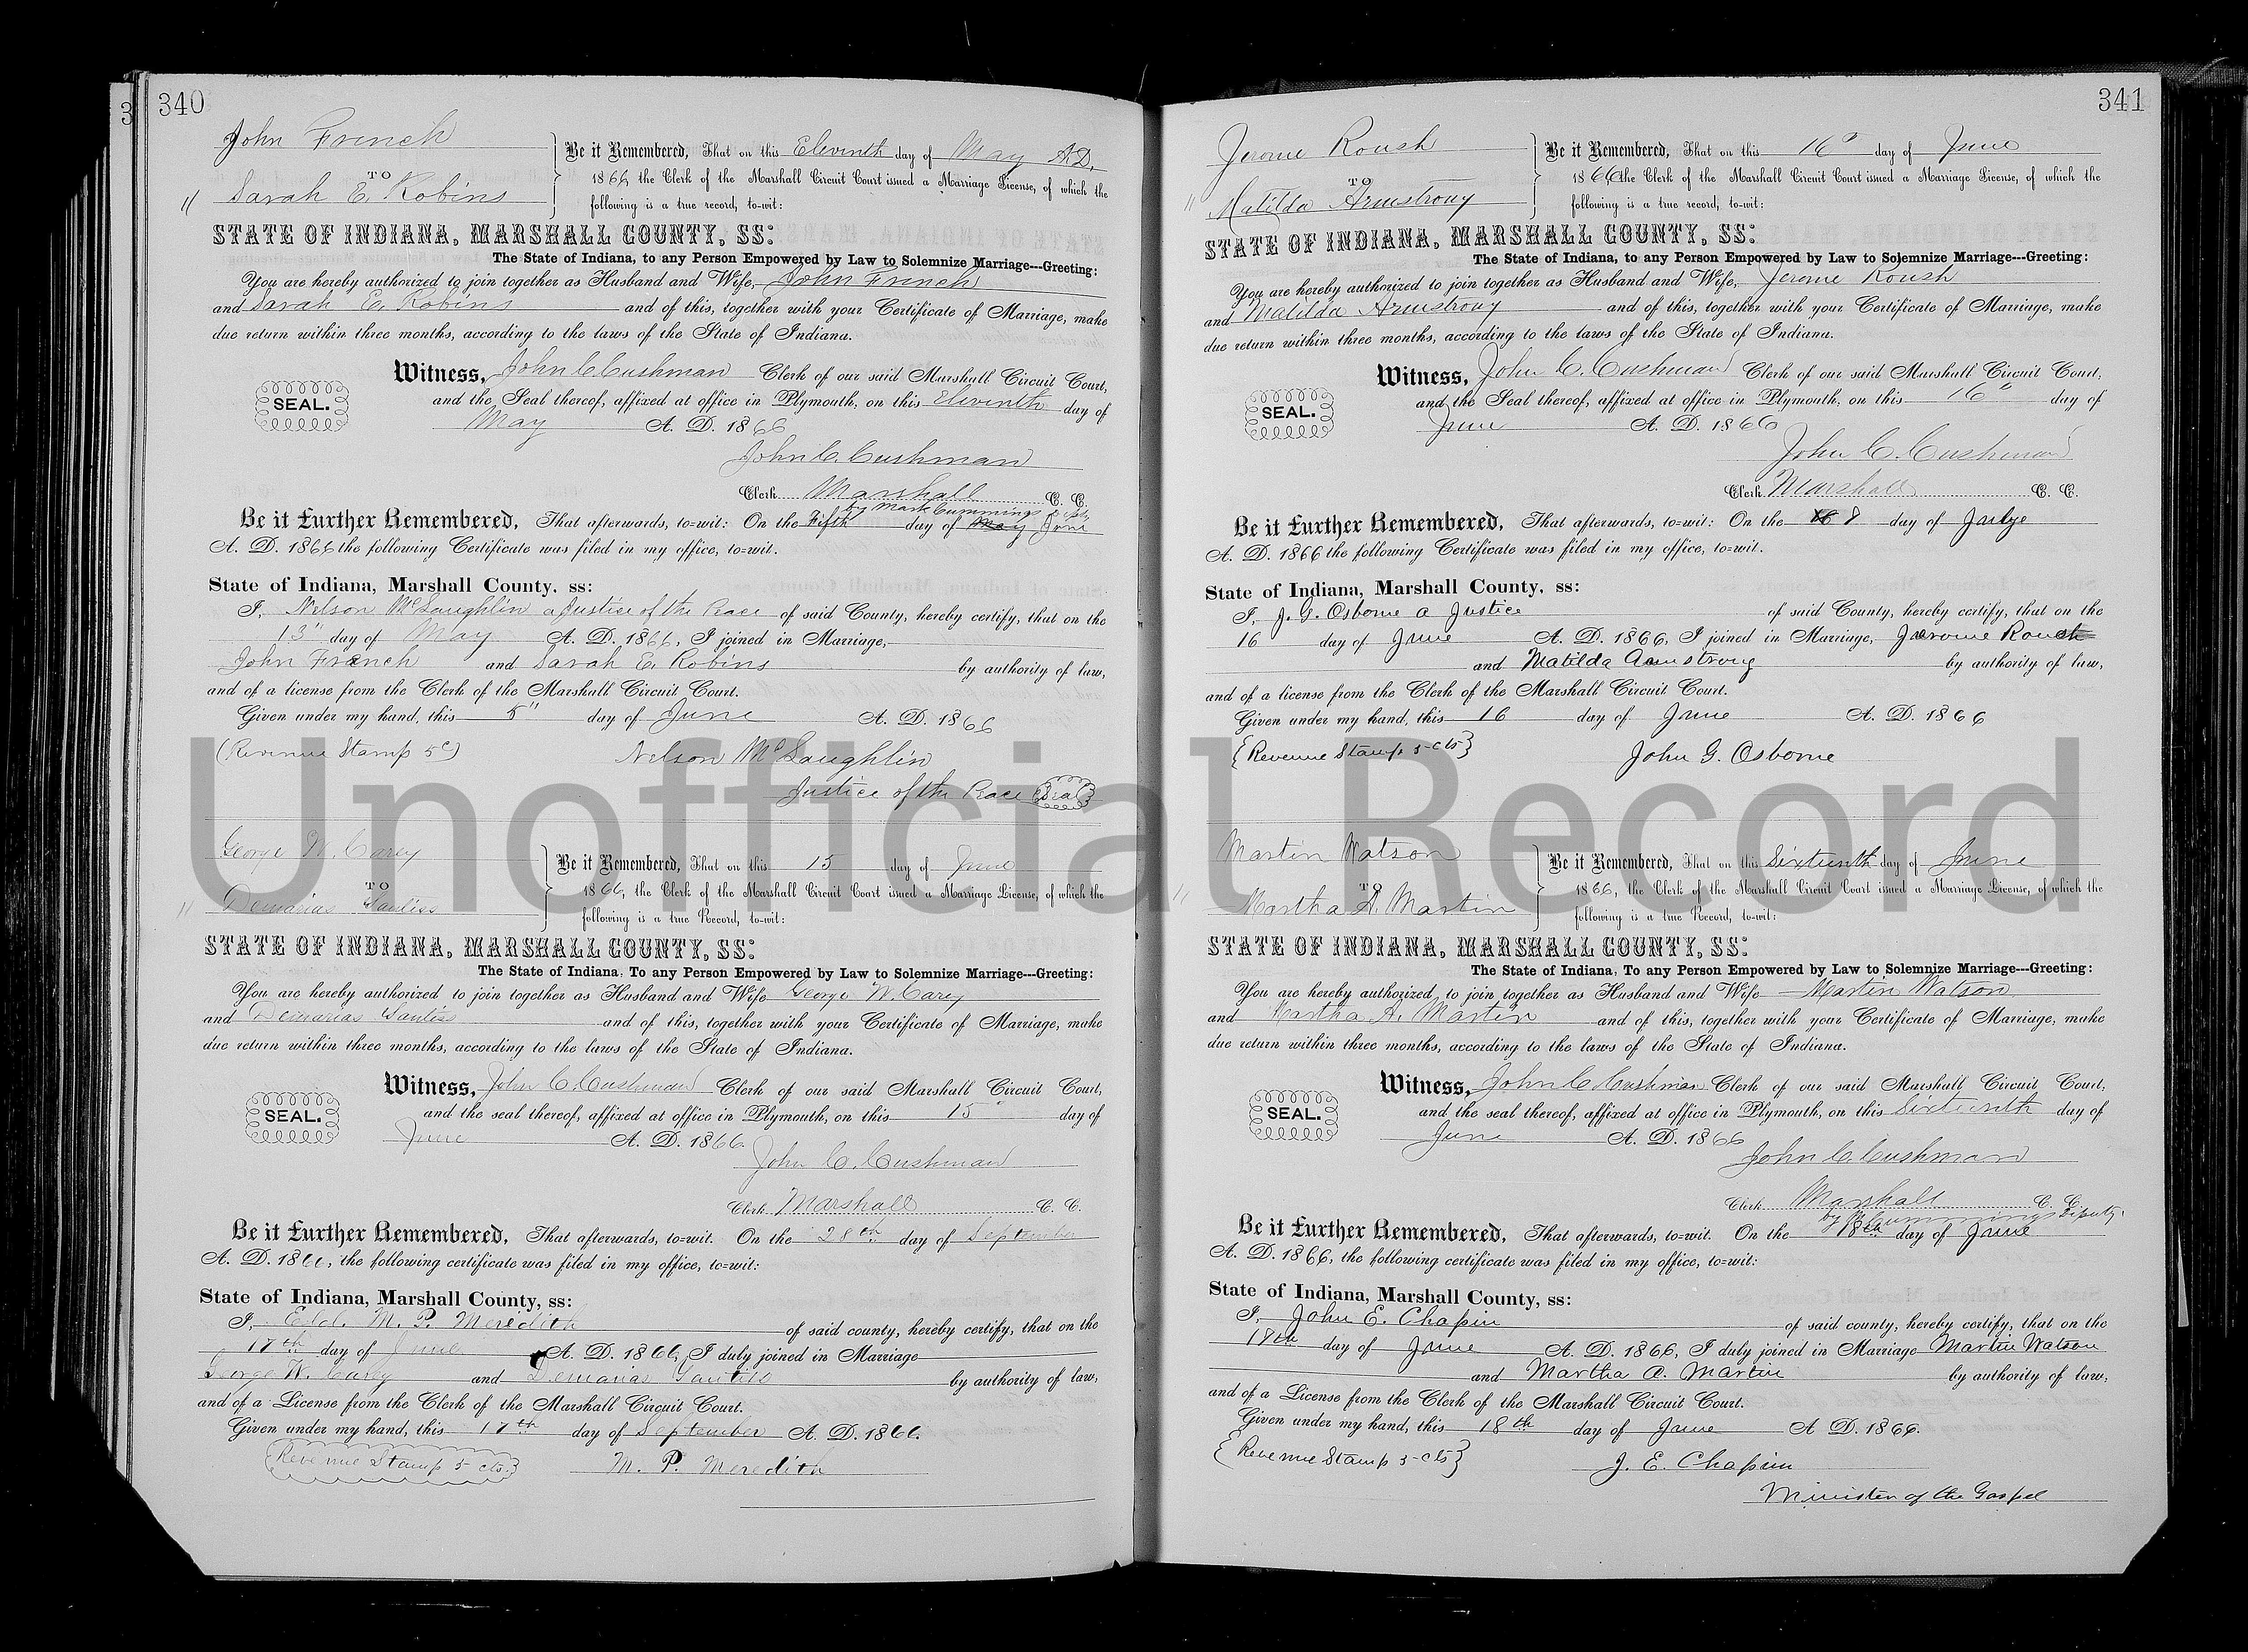 340
John French
TO
Sarah E. Robins
Be it Remembered, That on this Eleventh day of May A.D.
1866, the Clerk of the Marshall Circuit Court issued a Marriage License, of which the
following is a true record, to-wit:
STATE OF INDIANA, MARSHALL COUNTY, SS:
The State of Indiana, to any Person Empowered by Law to Solemnize Marriage---Greeting:
You are hereby authorized to join together as Husband and Wife, John French
and Sarah E. Robins and of this, together with your Certificate of Marriage, make
due return within three months, according to the laws of the State of Indiana.
SEAL.
Witness, John C. Cushman Clerk of our said Marshall Circuit Court,
and the Seal thereof, affixed at office in Plymouth, on this Eleventh day of
May A. D. 1866
John C. Cushman
Clerk Marshall C. C.
by Mark Cummings Depty
Be it Further Remembered, That afterwards, to=wit: On the Fifth day of May June
A. D. 1866 the following Certificate was filed in my office, to=wit.
State of Indiana, Marshall County, ss:
I, Nelson McLaughlin a Justice of the Peace of said County, hereby certify, that on the
13" day of May A. D. 1866, I joined in Marriage,
John French and Sarah E. Robins by authority of law,
and of a license from the Clerk of the Marshall Circuit Court.
Given under my hand, this 5" day of June A. D. 1866
(Revenue Stamp 5c)
Nelson McLaughlin
Justice of the Peace Seal
George W. Carey
TO
Demarias
Be it Remembered, That on this 15 day of June
1866, the Clerk of the Marshall Circuit Court issued a Marriage License, of which the
following is a true Record, to=wit:
STATE OF INDIANA, MARSHALL COUNTY, SS:
The State of Indiana, To any Person Empowered by Law to Solemnize Marriage---Greeting:
You are hereby authorized to join together as Husband and Wife George W. Carey
and Demarias and of this, together with your Certificate of Marriage, make
due return within three months, according to the laws of the State of Indiana.
SEAL.
Witness, John C. Cushman Clerk of our said Marshall Circuit Court,
and the seal thereof, affixed at office in Plymouth, on this 15" day of
June A. D. 1866.
John C. Cushman
Clerk Marshall C. C.
Be it Further Remembered, That afterwards, to=wit. On the 28th day of September
A. D. 1866, the following certificate was filed in my office, to=wit:
State of Indiana, Marshall County, ss:
I, Eld. M. P. Meredith of said county, hereby certify, that on the
17th day of June A. D. 1866, I duly joined in Marriage
George W. Carey and Demarias by authority of law,
and of a License from the Clerk of the Marshall Circuit Court.
Given under my hand, this 17th day of September A. D. 1866.
Revenue Stamp 5 cts.
M. P. Meredith
341
Jerome Roush
TO
Matilda Armstrong
Be it Remembered, That on this 16" day of June
1866 the Clerk of the Marshall Circuit Court issued a Marriage License, of which the
following is a true record, to-wit:
STATE OF INDIANA, MARSHALL COUNTY, SS:
The State of Indiana, to any Person Empowered by Law to Solemnize Marriage---Greeting:
You are hereby authorized to join together as Husband and Wife, Jerome Roush
and Matilda Armstrong and of this, together with your Certificate of Marriage, make
due return within three months, according to the laws of the State of Indiana.
SEAL.
Witness, John C. Cushman Clerk of our said Marshall Circuit Court,
and the Seal thereof, affixed at office in Plymouth, on this 16" day of
June A. D. 1866
John C. Cushman
Clerk Marshall C. C.
Be it Further Remembered, That afterwards, to=wit: On the 8 day of
A. D. 1866 the following Certificate was filed in my office, to=wit.
State of Indiana, Marshall County, ss:
I, J. G. Osborne a Justice of said County, hereby certify, that on the
16 day of June A. D. 1866, I joined in Marriage, Jerome Roush
and Matilda Armstrong by authority of law,
and of a license from the Clerk of the Marshall Circuit Court.
Given under my hand, this 16 day of June A. D. 1866
{Revenue Stamp 5-cts}
John G. Osborne
Martin Watson
TO
Martha A. Martin
Be it Remembered, That on this Sixteenth day of June
1866, the Clerk of the Marshall Circuit Court issued a Marriage License, of which the
following is a true Record, to=wit:
STATE OF INDIANA, MARSHALL COUNTY, SS:
The State of Indiana, To any Person Empowered by Law to Solemnize Marriage---Greeting:
You are hereby authorized to join together as Husband and Wife Martin Watson
and Martha A. Martin and of this, together with your Certificate of Marriage, make
due return within three months, according to the laws of the State of Indiana.
SEAL.
Witness, John C Cushman Clerk of our said Marshall Circuit Court,
and the seal thereof, affixed at office in Plymouth, on this Sixteenth day of
June A. D. 1866
John C. Cushman
Clerk Marshall C. C.
by M Cummings Deputy.
Be it Further Remembered, That afterwards, to=wit. On the 18th day of June
A. D. 1866, the following certificate was filed in my office, to=wit:
State of Indiana, Marshall County, ss:
I, John E. Chapin of said county, hereby certify, that on the
17th day of June A. D. 1866, I duly joined in Marriage Martin Watson
and Martha A. Martin by authority of law,
and of a License from the Clerk of the Marshall Circuit Court.
Given under my hand, this 18th day of June A D. 1866.
{Revenue Stamp 5-cts}
J. E. Chapin
Minister of the Gospel
Unofficial Record